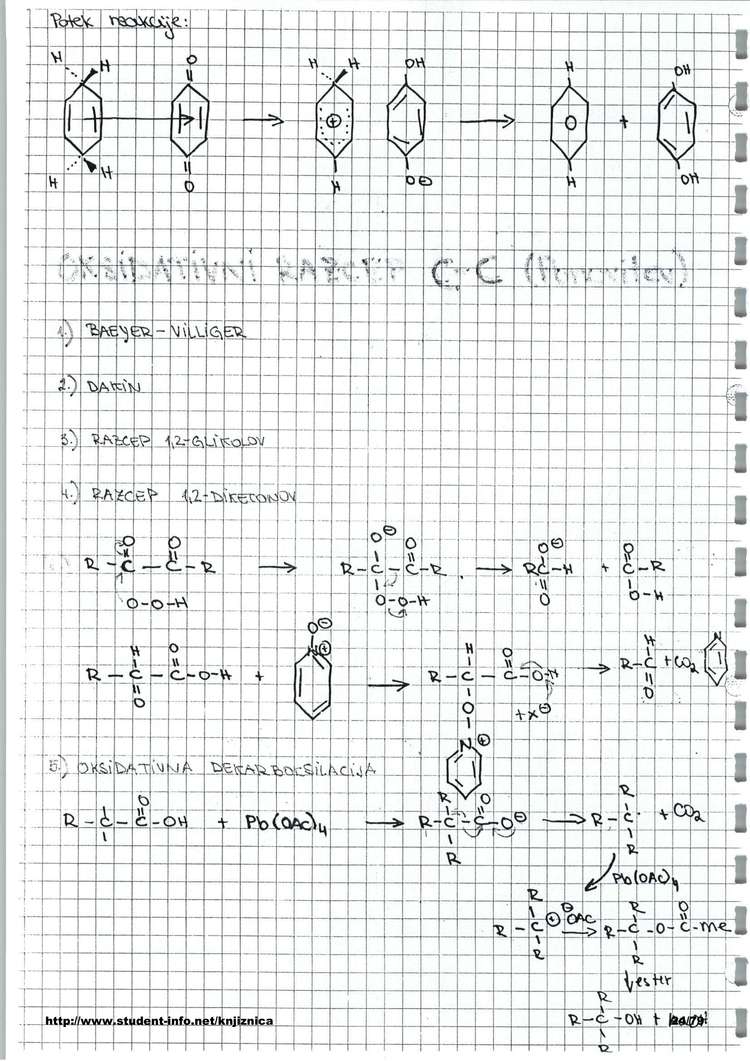 Potek reakcije:
H H O H H OH H OH
⊕ O +
H H O H O⊖ H OH
OKSIDATIVNI RAZCEP C-C (Ponovitev)
1.) BAEYER-VILLIGER
2.) DAKIN
3.) RAZCEP 1,2-GLIKOLOV
4.) RAZCEP 1,2-DIKETONOV
O O O⊖ O O⊖ O
R-C-C-R → R-C-C-R → RC-H + C-R
O-O-H O-O-H O O-H
H O O⊖ H O H
R-C-C-O-H + N⊕ → R-C-C-O-H → R-C + CO2 N
O O +x⊖ O
N⊕
5.) OKSIDATIVNA DEKARBOKSILACIJA
O R O R
R-C-C-OH + Pb(OAc)4 → R-C-C-O⊖ → R-C· + CO2
R R
Pb(OAc)4
R ⊖OAC R O
R-C⊕ → R-C-O-C-Me
R R
ester
R
R-C-OH +
R
http://www.student-info.net/knjiznica